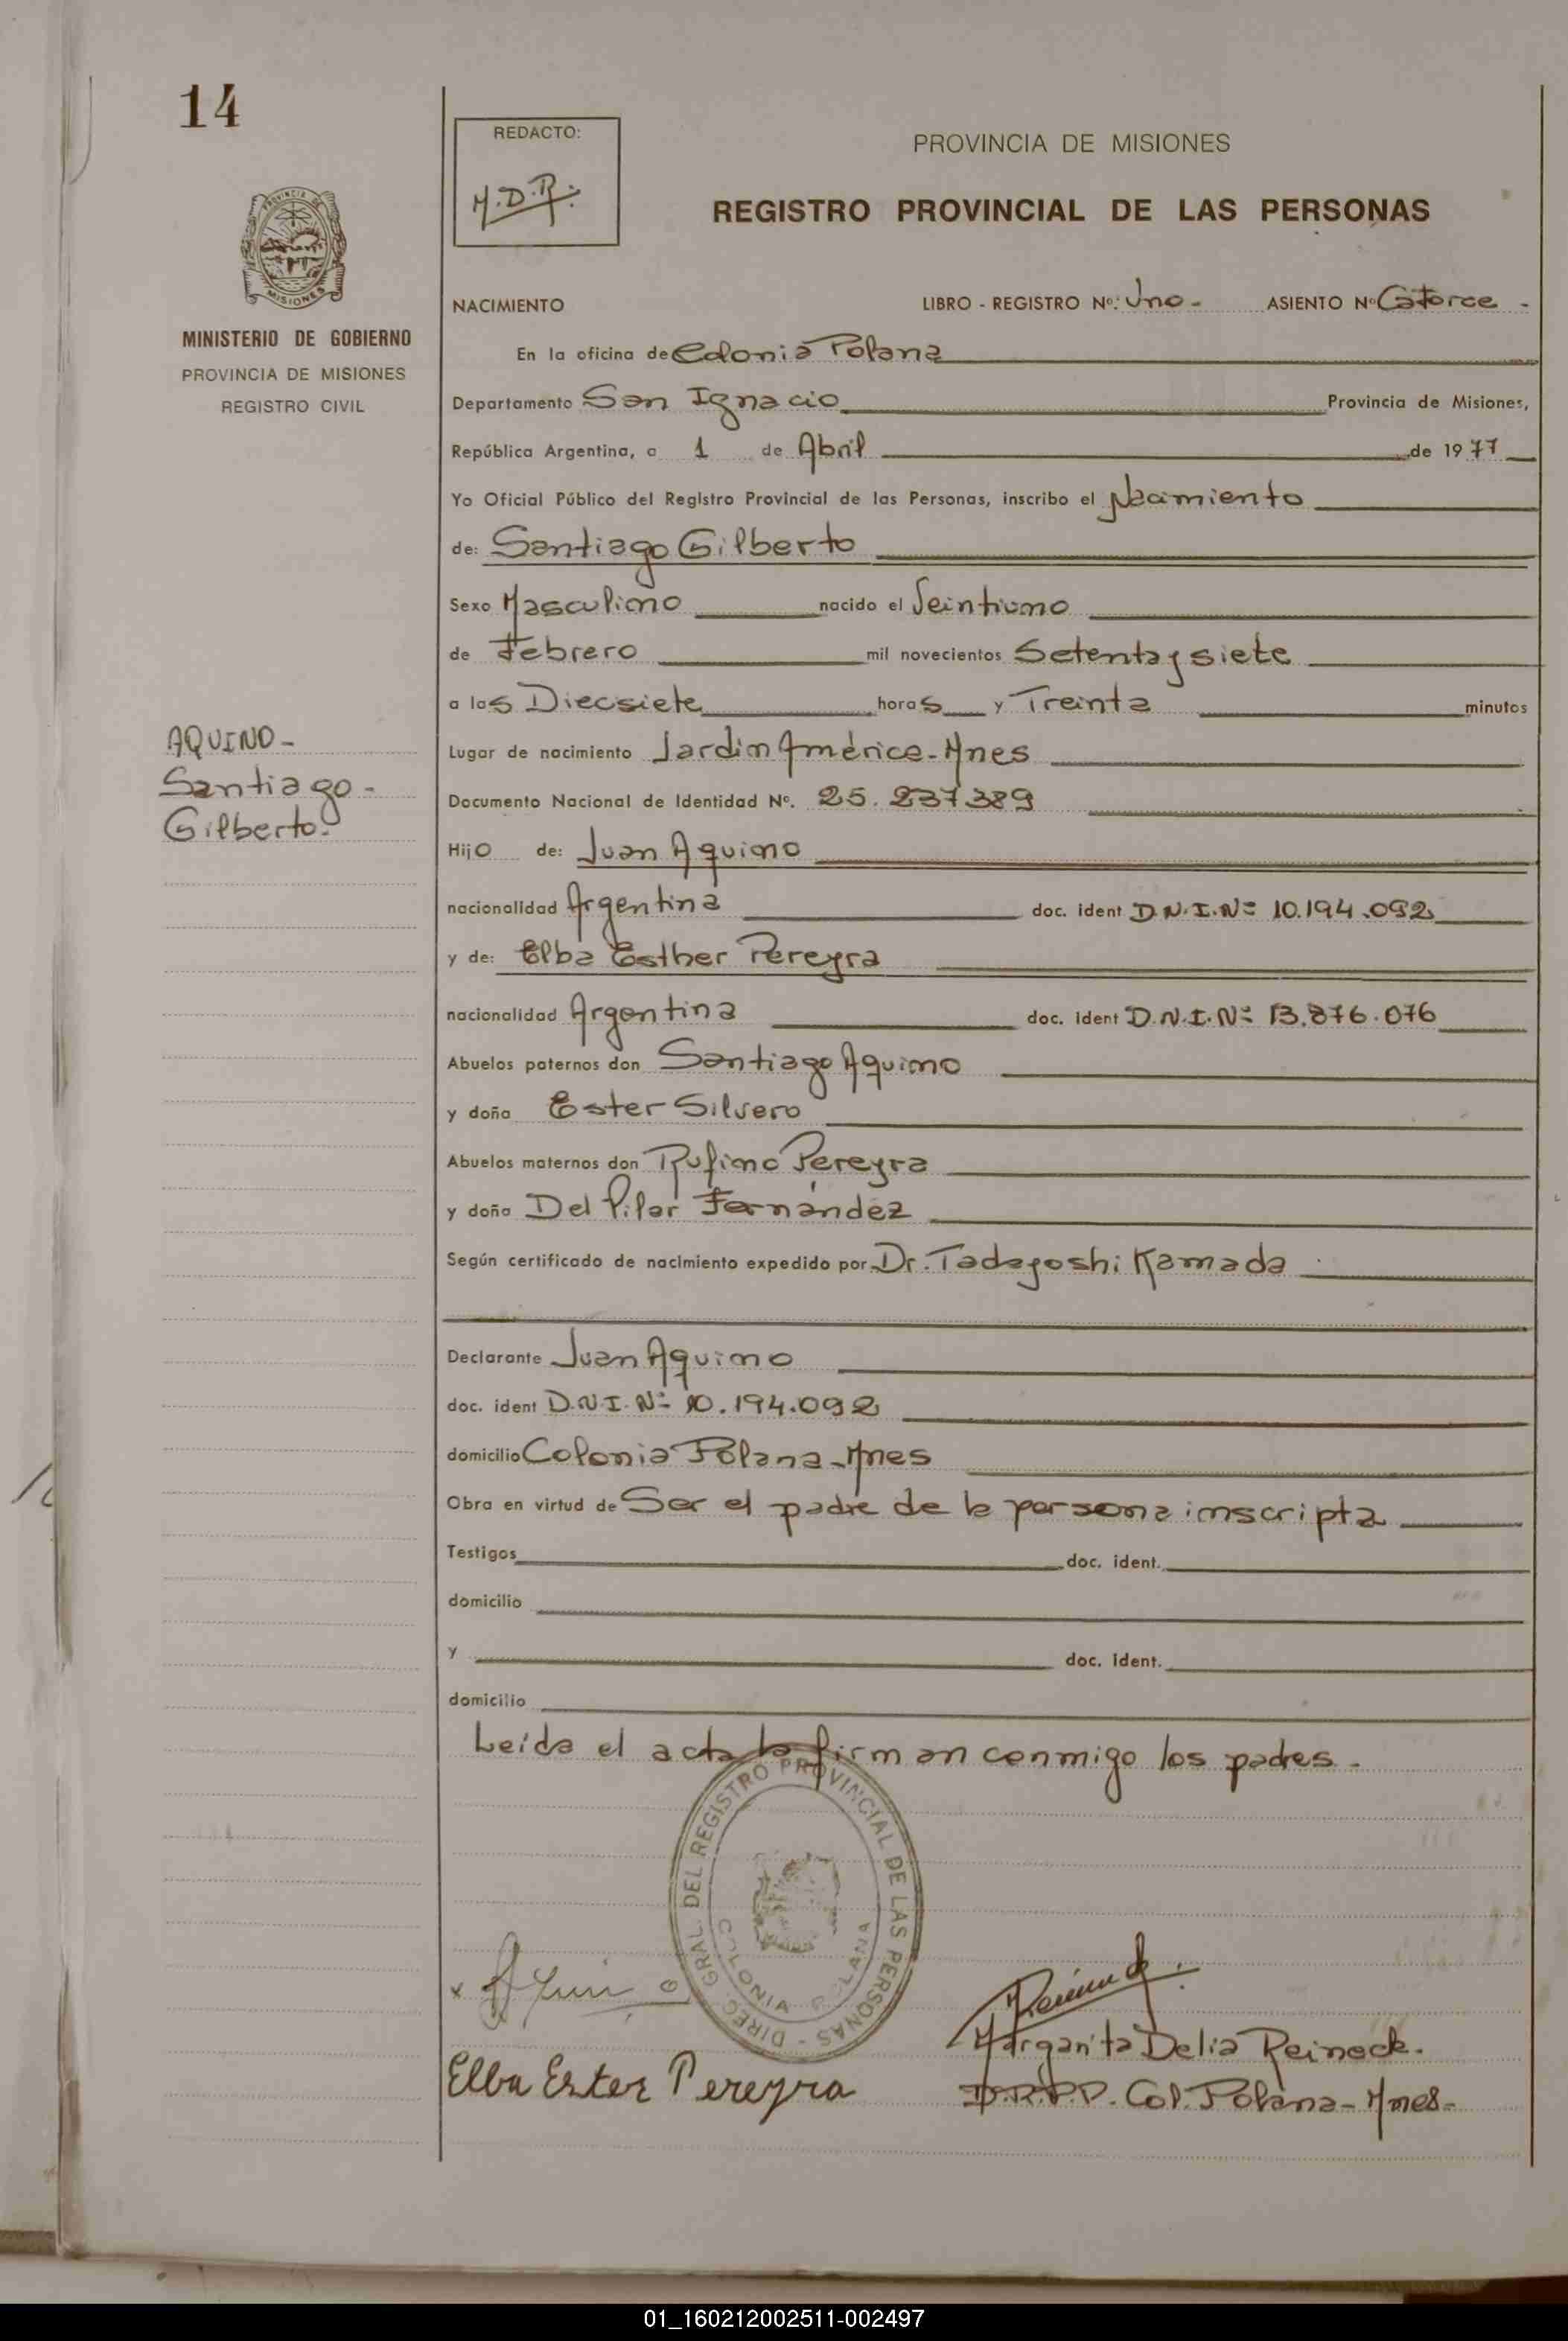 14
REDACTO:
M.D.R.
PROVINCIA DE MISIONES
REGISTRO PROVINCIAL DE LAS PERSONAS
PROVINCIA DE
MISIONES
MINISTERIO DE GOBIERNO
PROVINCIA DE MISIONES
REGISTRO CIVIL
NACIMIENTO LIBRO - REGISTRO Nº: Uno - ASIENTO Nº Catorce -
En la oficina de Colonia Polana
Departamento San Ignacio Provincia de Misiones,
República Argentina, a 1 de Abril de 1977
Yo Oficial Público del Registro Provincial de las Personas, inscribo el Nacimiento
de: Santiago Gilberto
Sexo Masculino nacido el Veintiuno
de Febrero mil novecientos Setenta y siete
a las Diecsiete horas y Treinta minutos
AQUINO -
Santiago -
Gilberto.
Lugar de nacimiento Jardín América - Mnes
Documento Nacional de Identidad Nº. 25.237.389
Hijo de: Juan Aquino
nacionalidad Argentina doc. ident D.N.I.Nº 10.194.092
y de: Elba Esther Pereyra
nacionalidad Argentina doc. ident D.N.I.Nº 13.876.076
Abuelos paternos don Santiago Aquino
y doña Ester Silvero
Abuelos maternos don Rufino Pereyra
y doña Del Pilar Fernández
Según certificado de nacimiento expedido por Dr. Tadayoshi Kamada
Declarante Juan Aquino
doc. ident D.N.I. Nº 10.194.092
domicilio Colonia Polana - Mnes
Obra en virtud de Ser el padre de la persona inscripta
Testigos doc. ident.
domicilio
y doc. ident.
domicilio
Leída el acta la firman conmigo los padres.
DIREC. GRAL. DEL REGISTRO PROVINCIAL DE LAS PERSONAS -
COLONIA POLANA
Margarita Delia Reineck.
Elba Ester Pereyra
D.R.P.P. Col. Polana - Mnes -
01_160212002511-002497